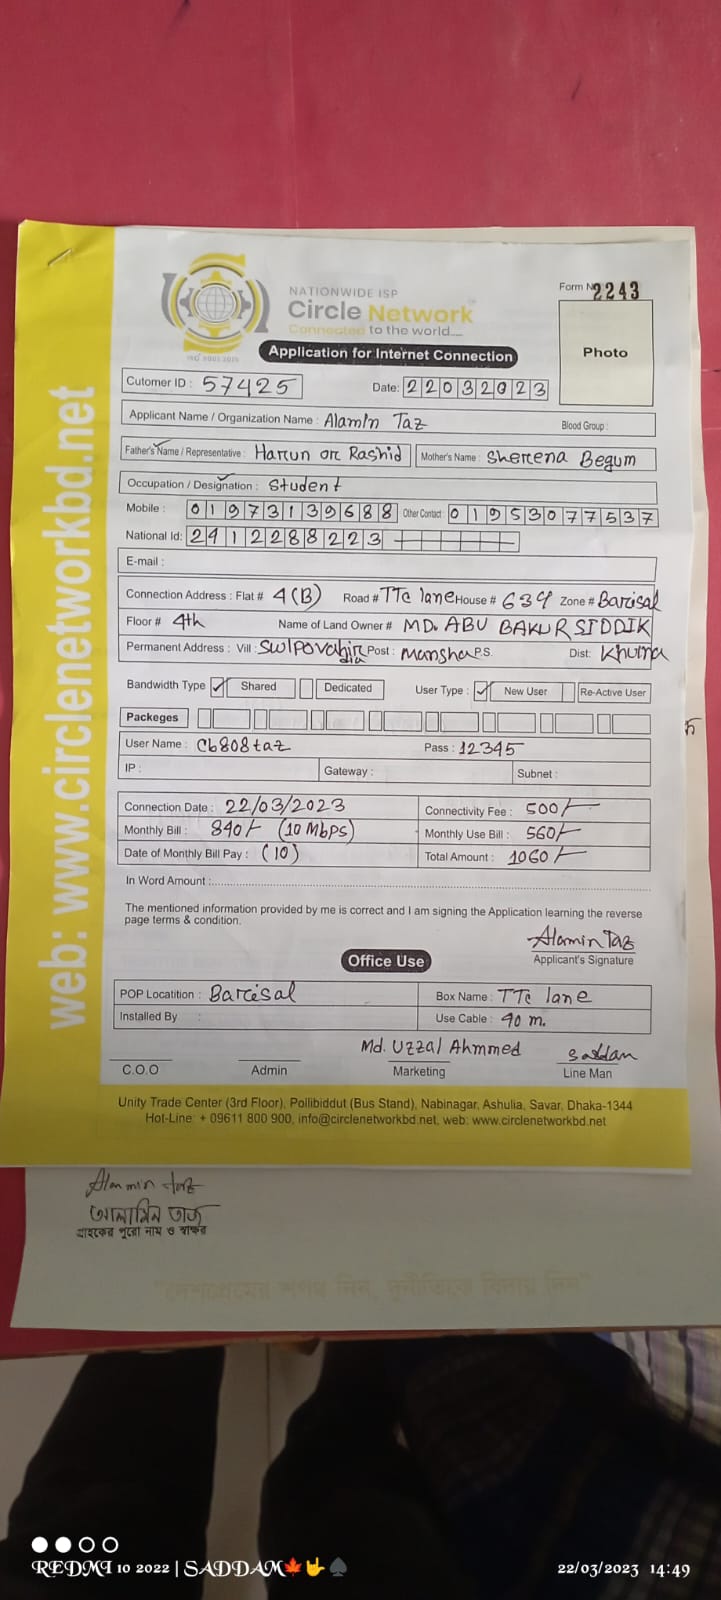 NATIONWIDE ISP
Circle Network
Connected to the world....
ISO 9001:2015
Form N 2243
Photo
Application for Internet Connection
Cutomer ID : 57425 Date: 22032023
Applicant Name / Organization Name : Alamin Taz Blood Group :
Father's Name / Representative : Harun or Rashid Mother's Name : Sherena Begum
Occupation / Designation : Student
Mobile : 01973139688 Other Contact : 01953077537
National Id: 2412288223
E-mail :
Connection Address : Flat # 4(B) Road # TTc lane House # 639 Zone # Barisal
Floor # 4th Name of Land Owner # MD. ABU BAKUR SIDDIK
Permanent Address : Vill : Post : Mansha P.S. Dist: Khulna
Bandwidth Type Shared Dedicated User Type : New User Re-Active User
Packeges
User Name : Cb808taz Pass : 12345
IP : Gateway : Subnet :
Connection Date : 22/03/2023 Connectivity Fee : 500/-
Monthly Bill : 840/- (10 Mbps) Monthly Use Bill : 560/-
Date of Monthly Bill Pay : (10) Total Amount : 1060/-
In Word Amount :
The mentioned information provided by me is correct and I am signing the Application learning the reverse
page terms & condition.
Alamin Taz
Applicant's Signature
Office Use
POP Locatition : Barisal Box Name : TTc lane
Installed By : Use Cable : 90 m.
Md. Uzzal Ahmmed Saddam
C.O.O Admin Marketing Line Man
Unity Trade Center (3rd Floor), Pollibiddut (Bus Stand), Nabinagar, Ashulia, Savar, Dhaka-1344
Hot-Line: + 09611 800 900, info@circlenetworkbd.net, web: www.circlenetworkbd.net
web: www.circlenetworkbd.net
Alamin taz
আলামিন তাজ
গ্রাহকের পুরো নাম ও স্বাক্ষর
"দেশপ্রেমের শপথ নিন, দুর্নীতিকে বিদায় দিন"
REDMI 10 2022 | SADDAM🍁🤟♠
22/03/2023 14:49